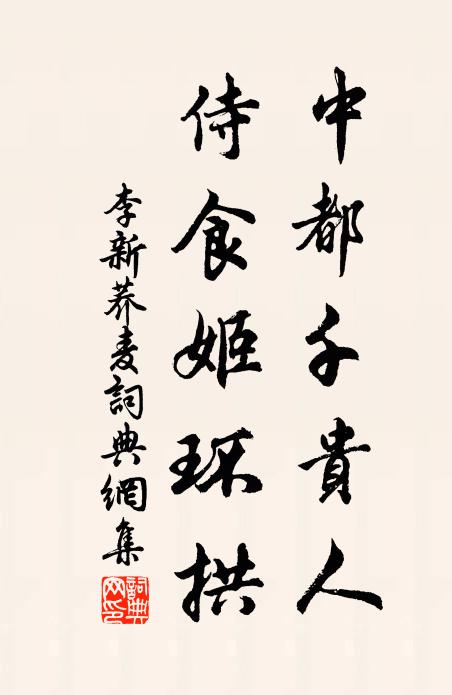 中都千貴人
侍食姬环拱
李新荞麦詞典網集
詞典网印